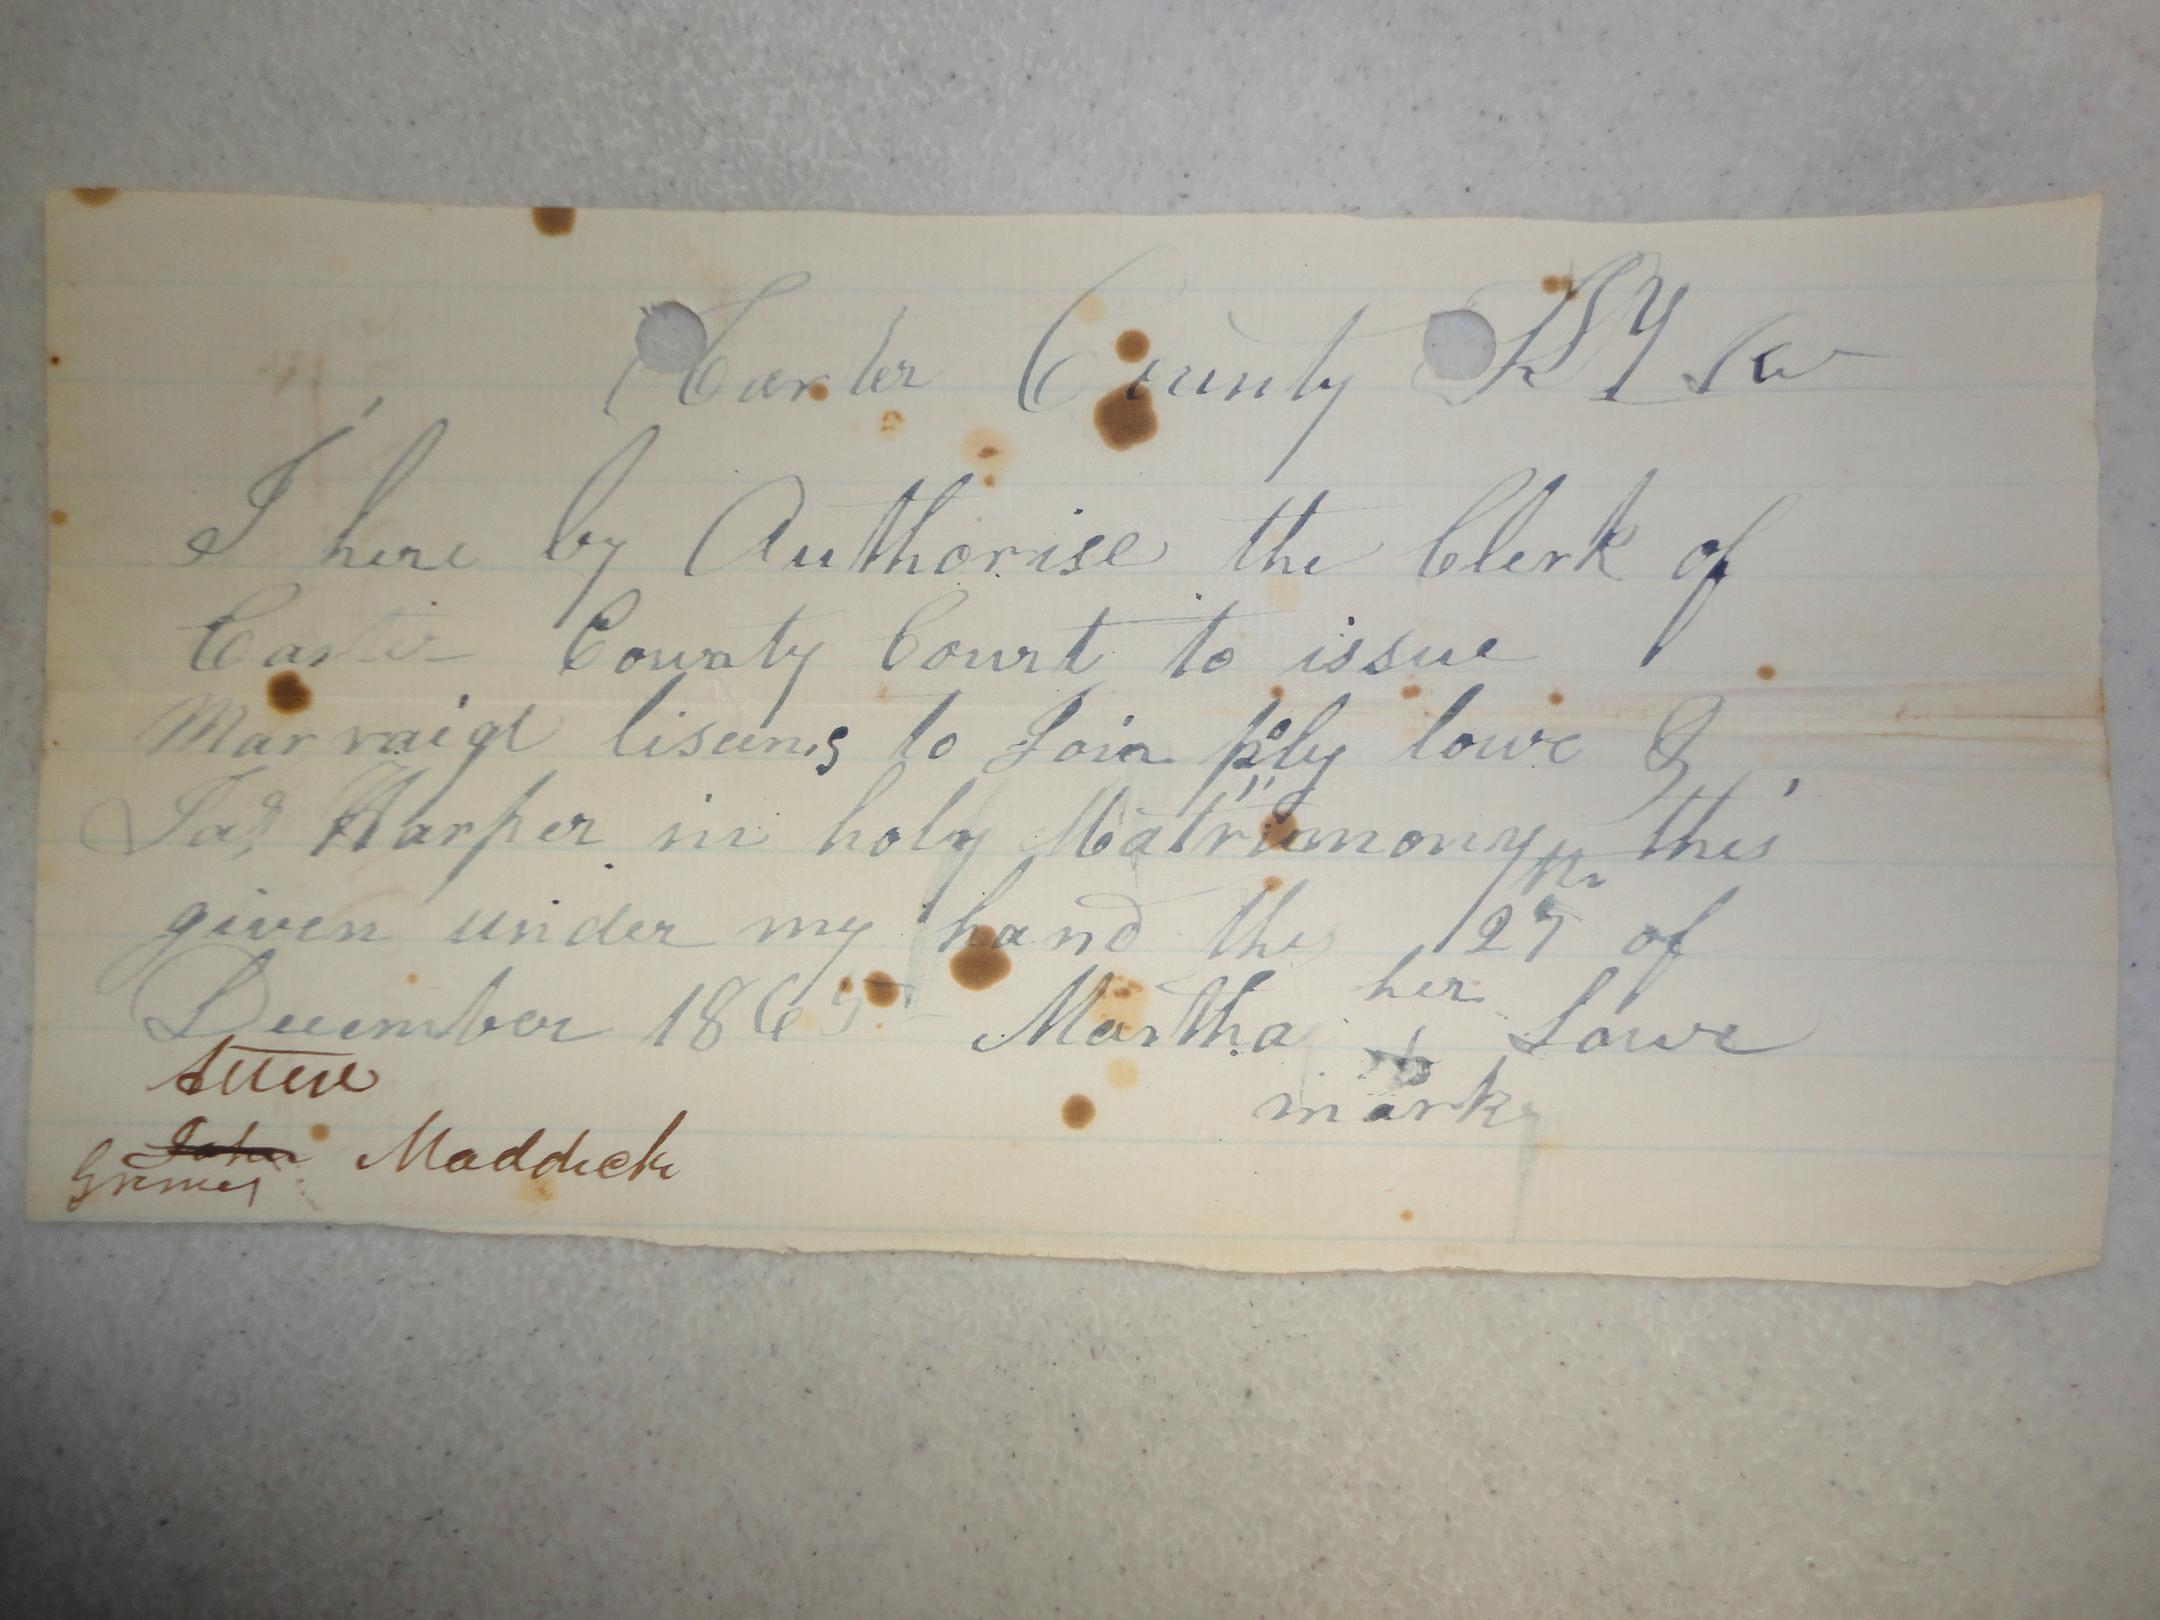 Carter County KY
I here by Authorise the Clerk of
Carter County Court to issue
Marraige liseens to Join poly lowe &
Jas Harper in holy Matrimony this
given under my hand this 27th of
December 1865 Martha her Lowe
mark
Attest
John Maddick